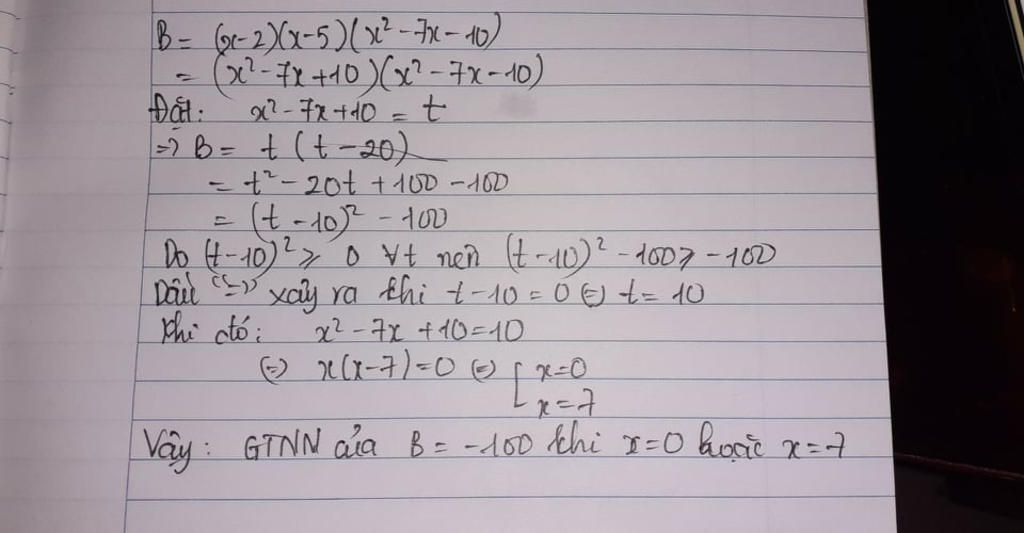 B = (x-2)(x-5)(x² - 7x - 10)
= (x² - 7x + 10)(x² - 7x - 10)
Đặt: x² - 7x + 10 = t
=> B = t (t - 20)
= t² - 20t + 100 - 100
= (t - 10)² - 100
Do (t - 10)² ≥ 0 ∀t nên (t - 10)² - 100 ≥ -100
Dấu "=" xảy ra khi t - 10 = 0 (=) t = 10
Khi đó: x² - 7x + 10 = 10
(=) x(x - 7) = 0 (=) [ x = 0
x = 7
Vậy: GTNN của B = -100 khi x = 0 hoặc x = 7